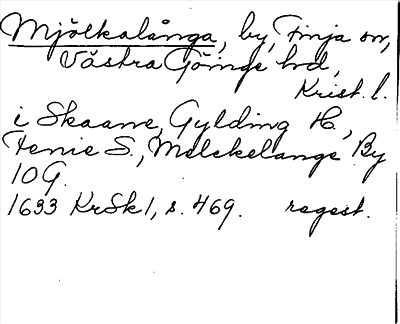 Mjölkalånga, by, Finja sn,
Västra Göinge hd,
Krist. l.
i Skaane, Gylding H.,
Fenie S., Melckelange By
10 G.
1633 KrSk 1, s. 469. regest.